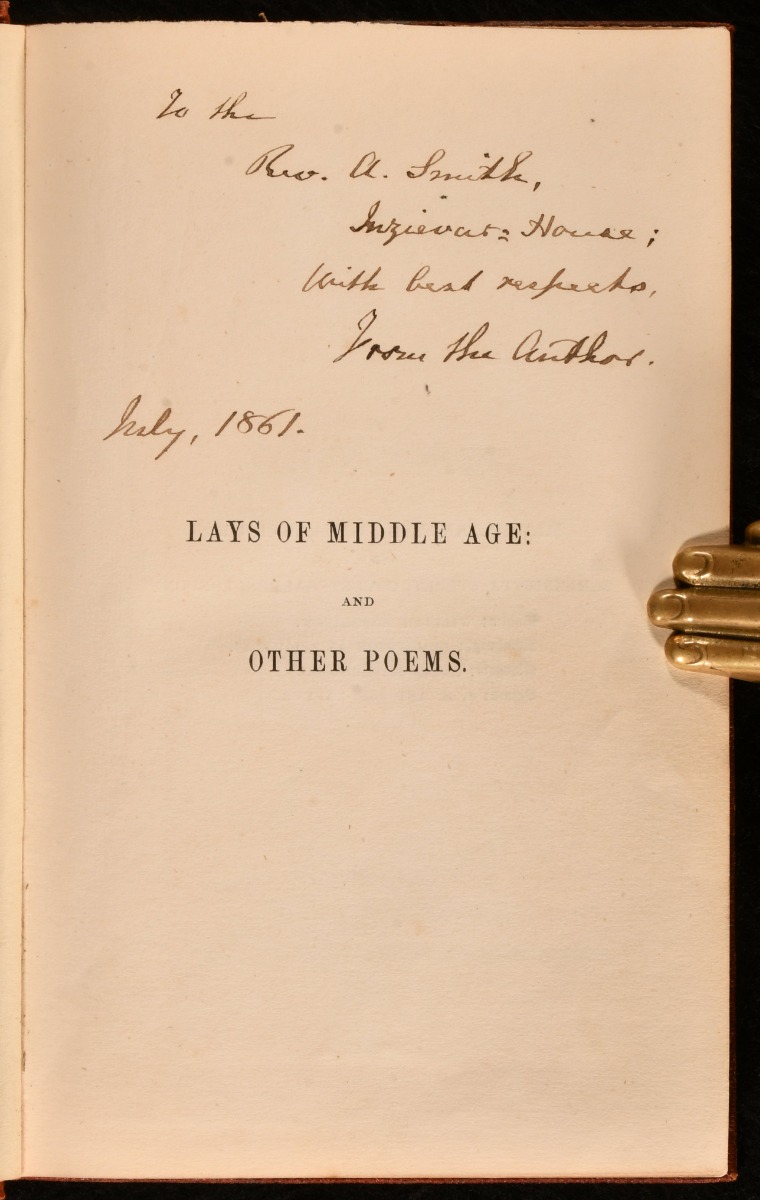 To the
Rev. A. Smith,
Inzievar= House;
With best respects,
From the Author.
July, 1861.
LAYS OF MIDDLE AGE:
AND
OTHER POEMS.